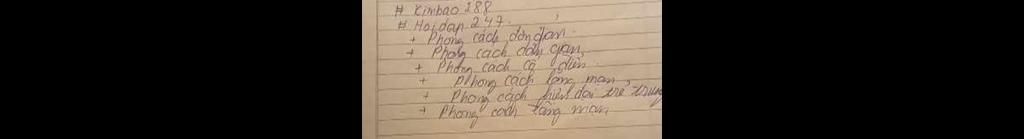 # Kimbao 288
# Hoidap 247.
+ Phong cách đơn giản.
+ Phong cách dân gian,
+ Phong cách cổ điển.
+ Phong cách lãng mạn,
+ Phong cách hiện đại trẻ trung
+ Phong cách lãng mạn,